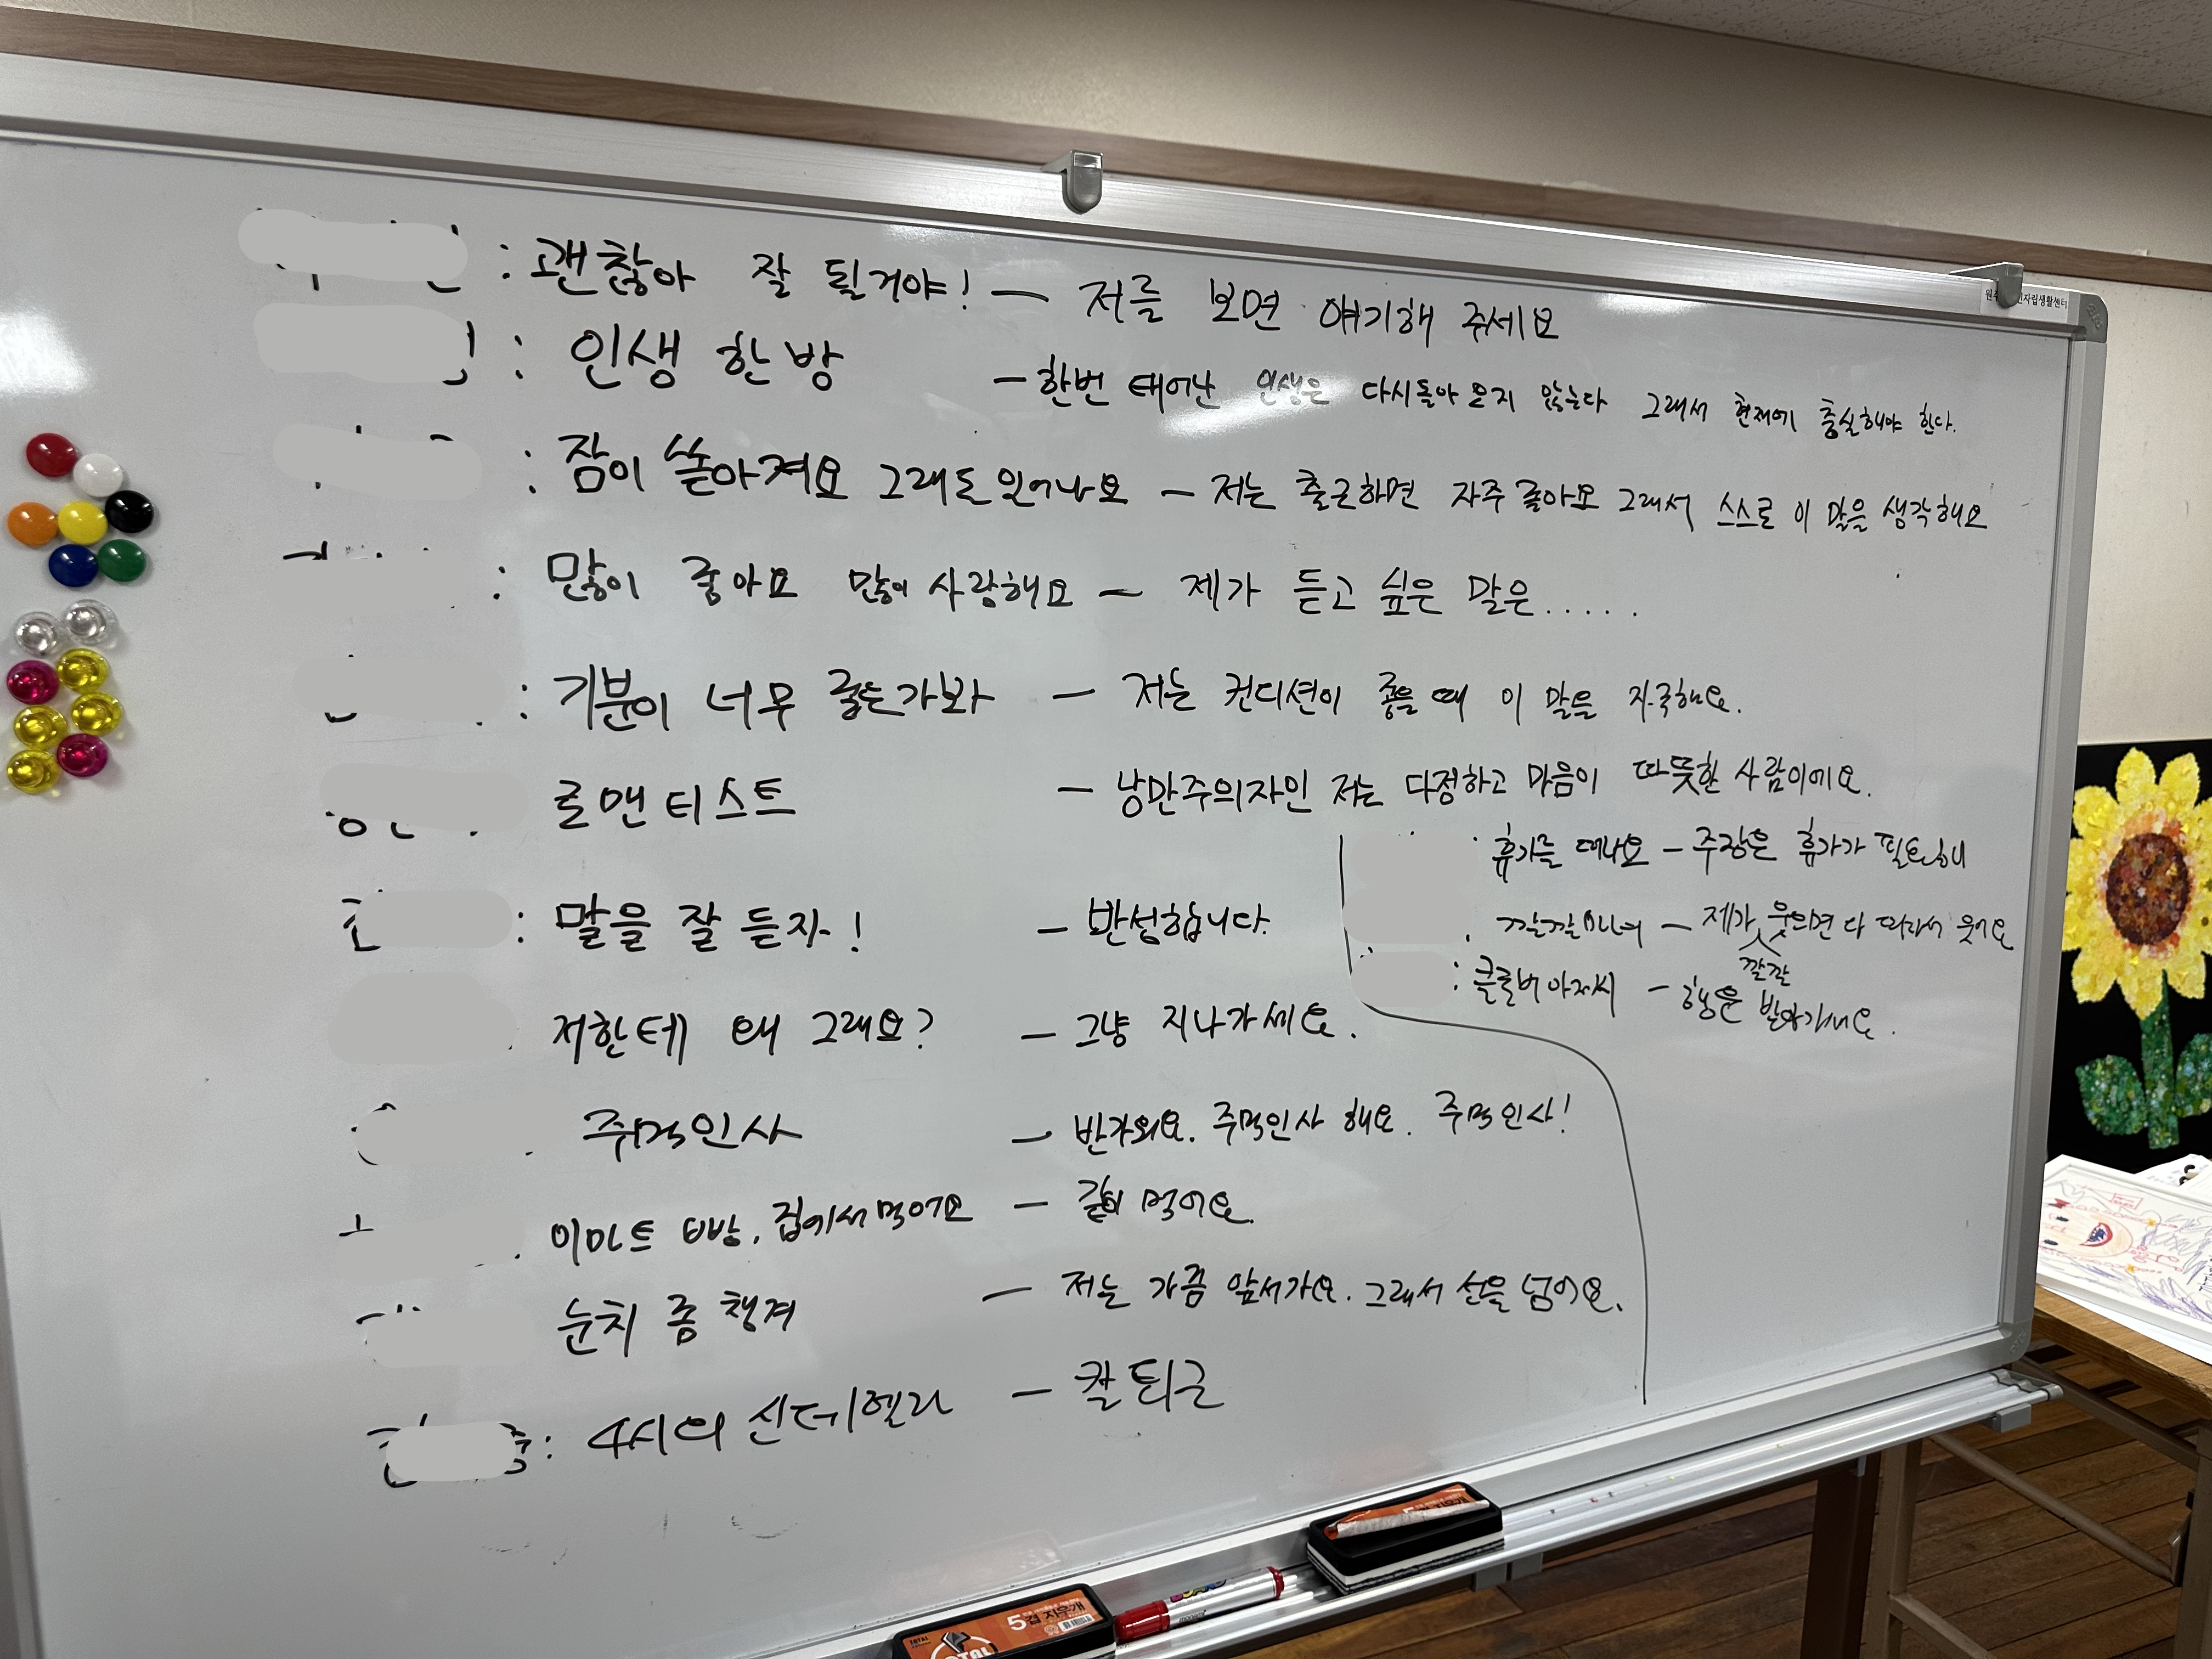 : 괜찮아 잘 될거야! — 저를 보면 얘기해 주세요
: 인생 한방 — 한번 태어난 인생은 다시 돌아오지 않는다 그래서 현재에 충실해야 한다.
: 잠이 쏟아져요 그래도 일어나요 — 저는 출근하면 자주 졸아요 그래서 스스로 이 말을 생각해요
: 많이 좋아요 많이 사랑해요 — 제가 듣고 싶은 말은.....
: 기분이 너무 좋은가봐 — 저는 컨디션이 좋을 때 이 말을 자주해요.
로맨티스트 — 낭만주의자인 저는 다정하고 마음이 따뜻한 사람이에요.
: 말을 잘 듣자! — 반성합니다.
저한테 왜 그래요? — 그냥 지나가세요.
주먹인사 — 반가워요. 주먹인사 해요. 주먹인사!
이마트 빵, 집에서 먹어요 — 같이 먹어요.
눈치 좀 챙겨 — 저는 가끔 앞서가요. 그래서 선을 넘어요.
: 4시의 신데렐라 — 칼퇴근
: 휴가를 떠나요 — 주장은 휴가가 필요해
깔깔마녀 — 제가 깔깔 웃으면 다 따라서 웃어요
: 클로버 아저씨 — 행운 받아가세요.
자립생활센터
5겹 지우개
TOTAL